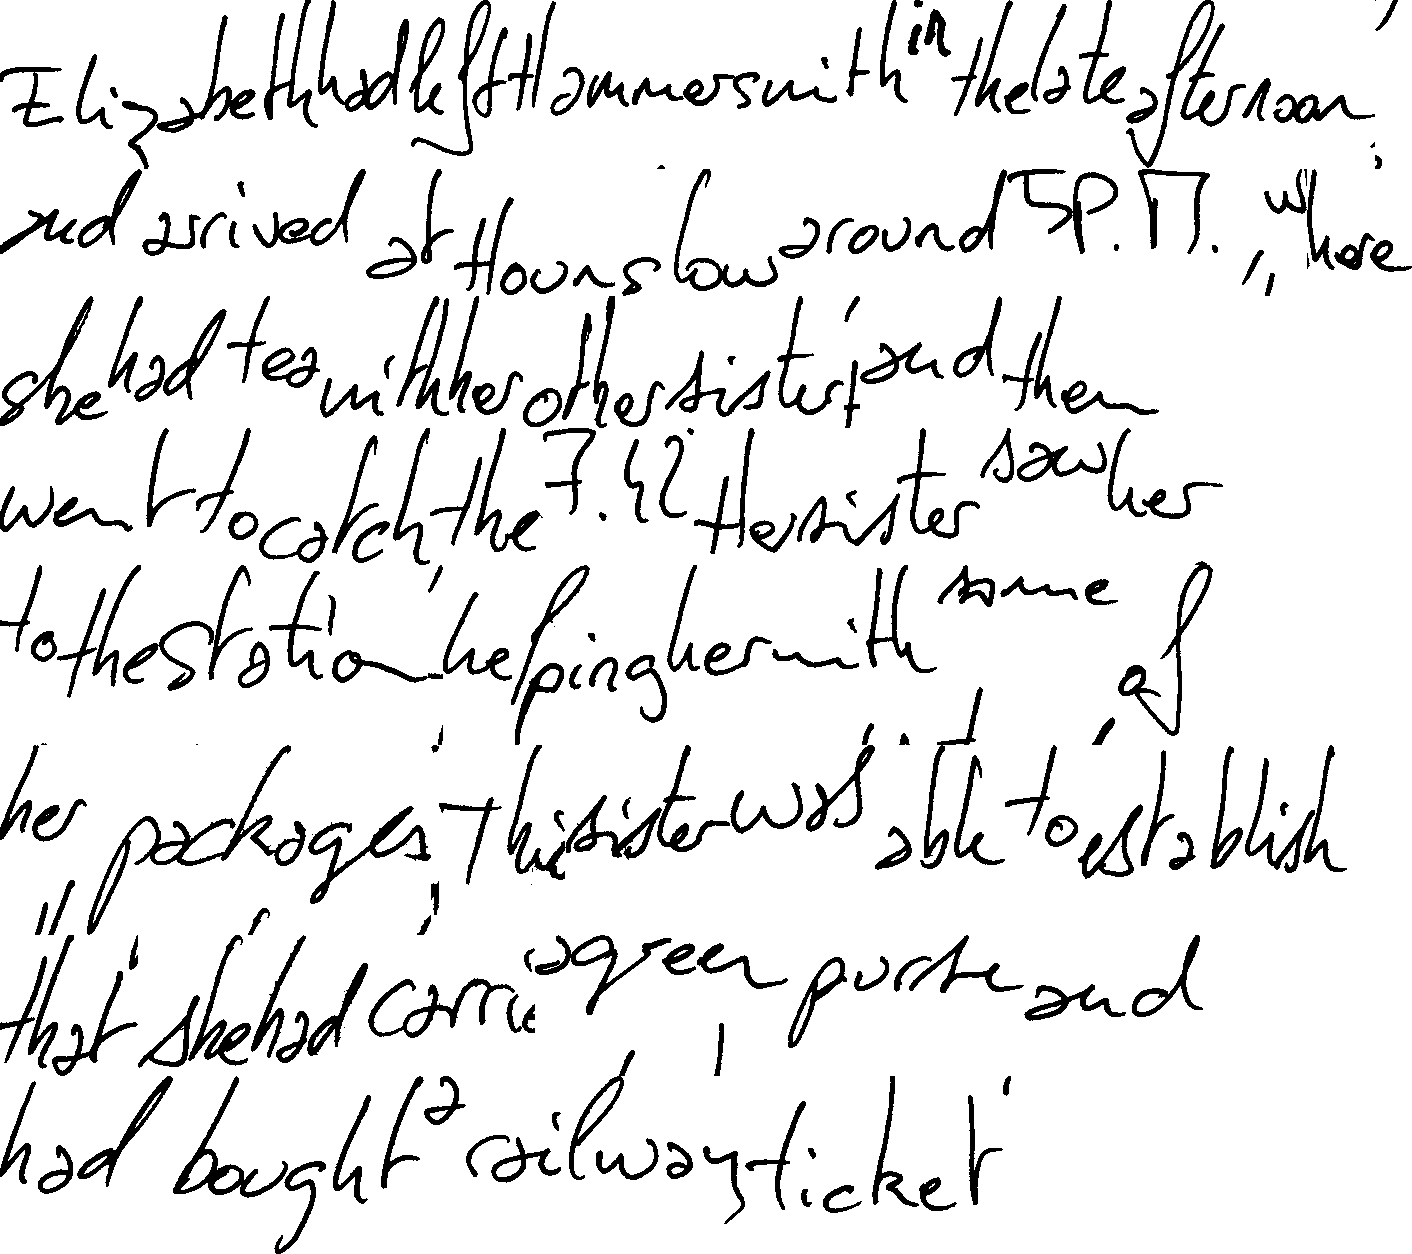 Elizabeth had left Hammersmith in the late afternoon
and arrived at Hounslow around 5 P.M., where
she had tea with her other sister, and then
went to catch the 7.42 Her sister saw her
to the station, helping her with some of
her packages, The sister was able to establish
that she had carrie a green purse and
had bought a railway ticket